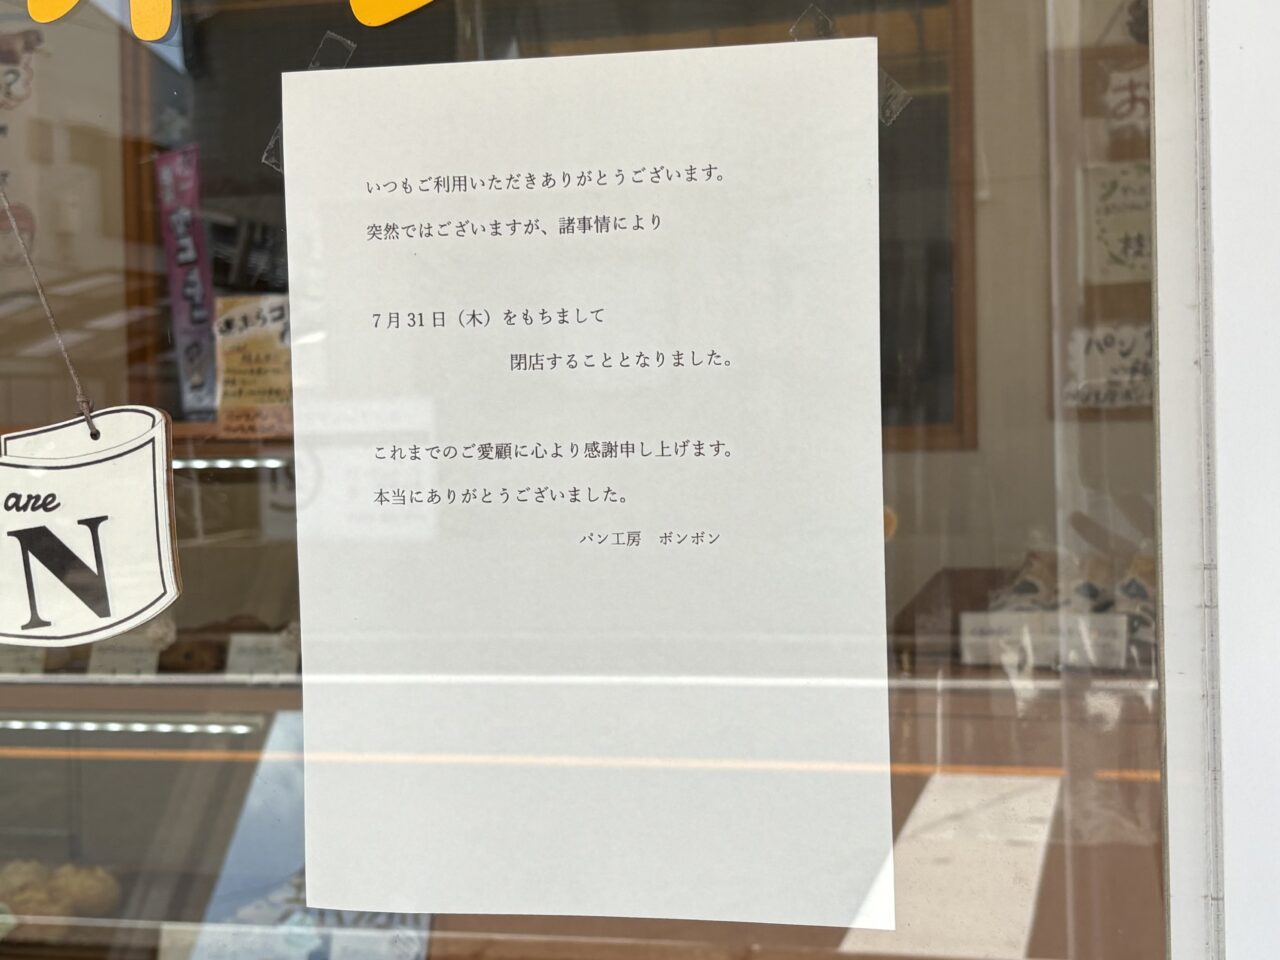 いつもご利用いただきありがとうございます。
突然ではございますが、諸事情により
7月31日（木）をもちまして
閉店することとなりました。
これまでのご愛顧に心より感謝申し上げます。
本当にありがとうございました。
パン工房　ボンボン
are
N